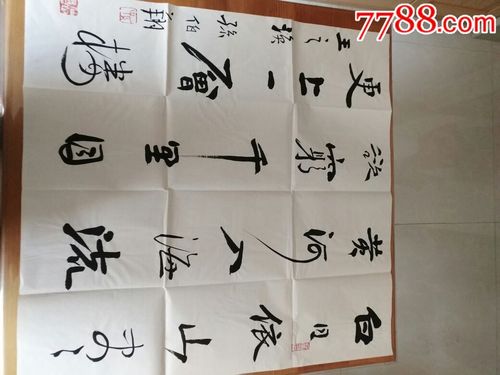 7788.com
白日依山尽
黄河入海流
欲窮千里目
更上一層樓
王之涣
孫伯翔